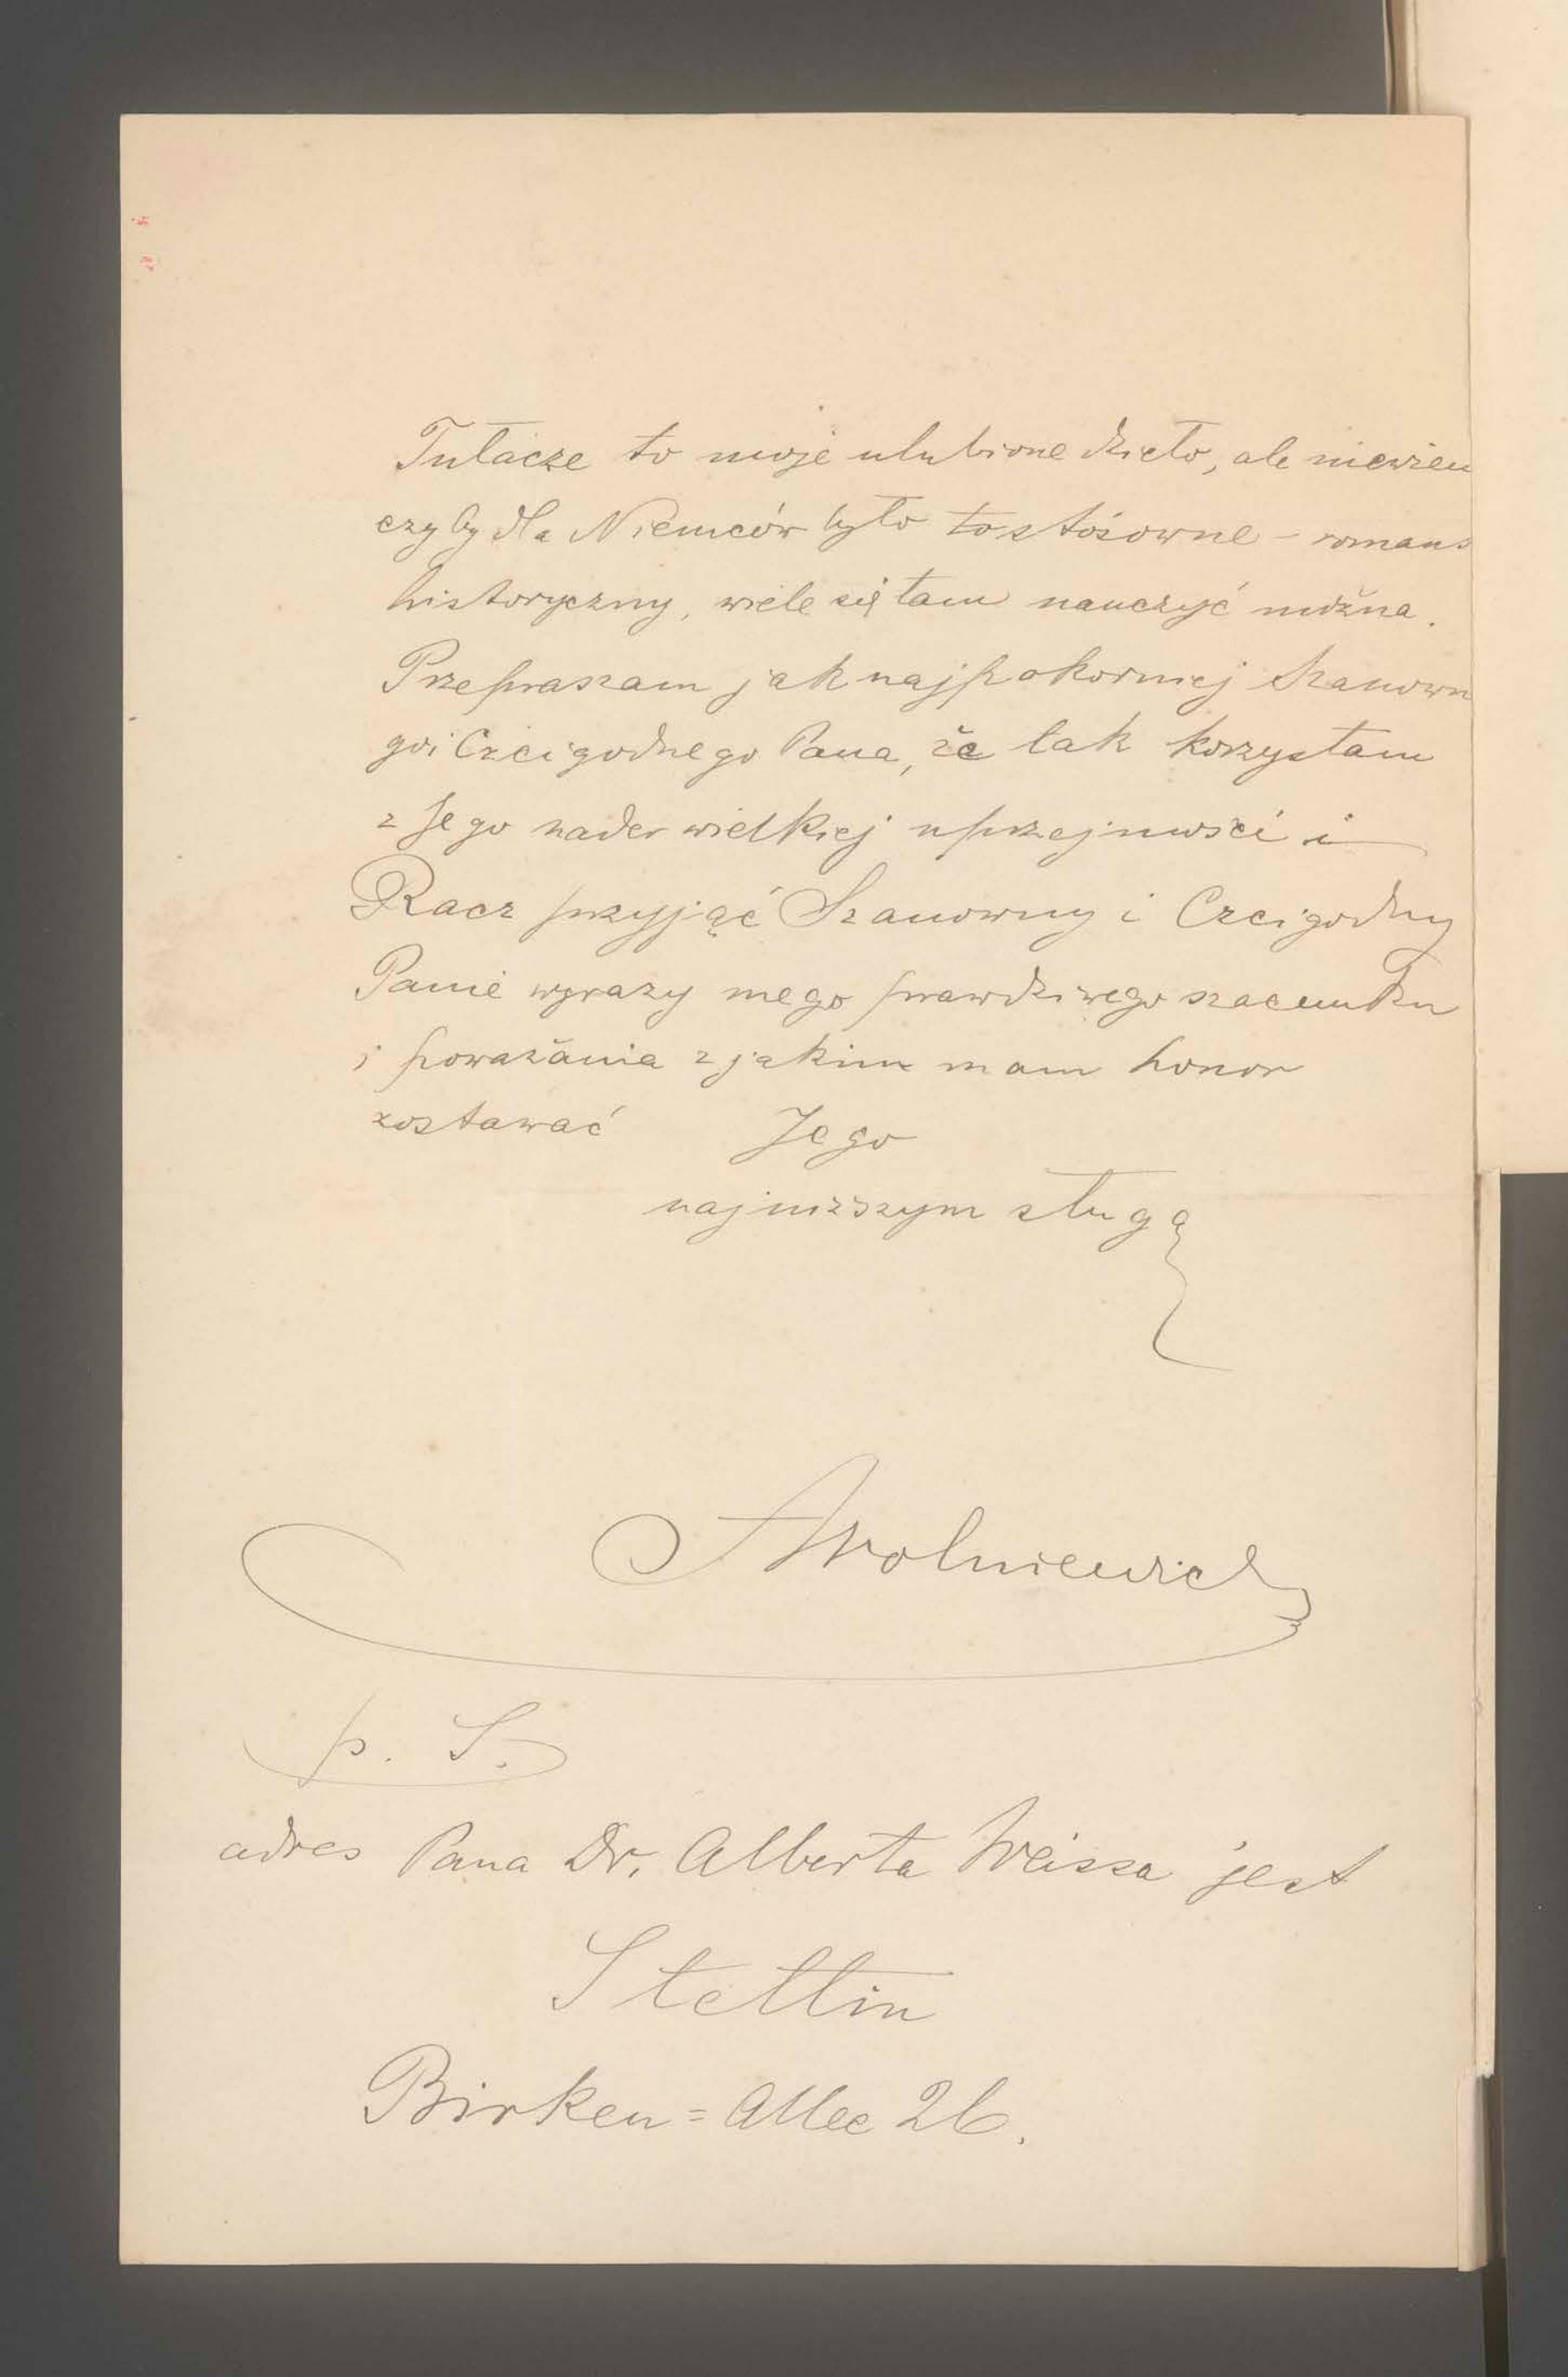 Tułacze to moje ulubione dzieło, ale niewiem
czyby dla Niemców było to stósowne – romans
historyczny, wiele się tam nauczyć można.
Przepraszam jak najpokorniej Szanown
go i Czcigodnego Pana, że tak korzystam
z Jego nader wielkiej uprzejmości i
Racz przyjąć Szanowny i Czcigodny
Panie wyrazy mego prawdziwego szacunku
i poważania z jakim mam honor
zostawać Jego
najniższym sługą
AWolniewicz
p. S.
adres Pana Dr. Alberta Weissa jest
Stettin
Birken=Allee 26.